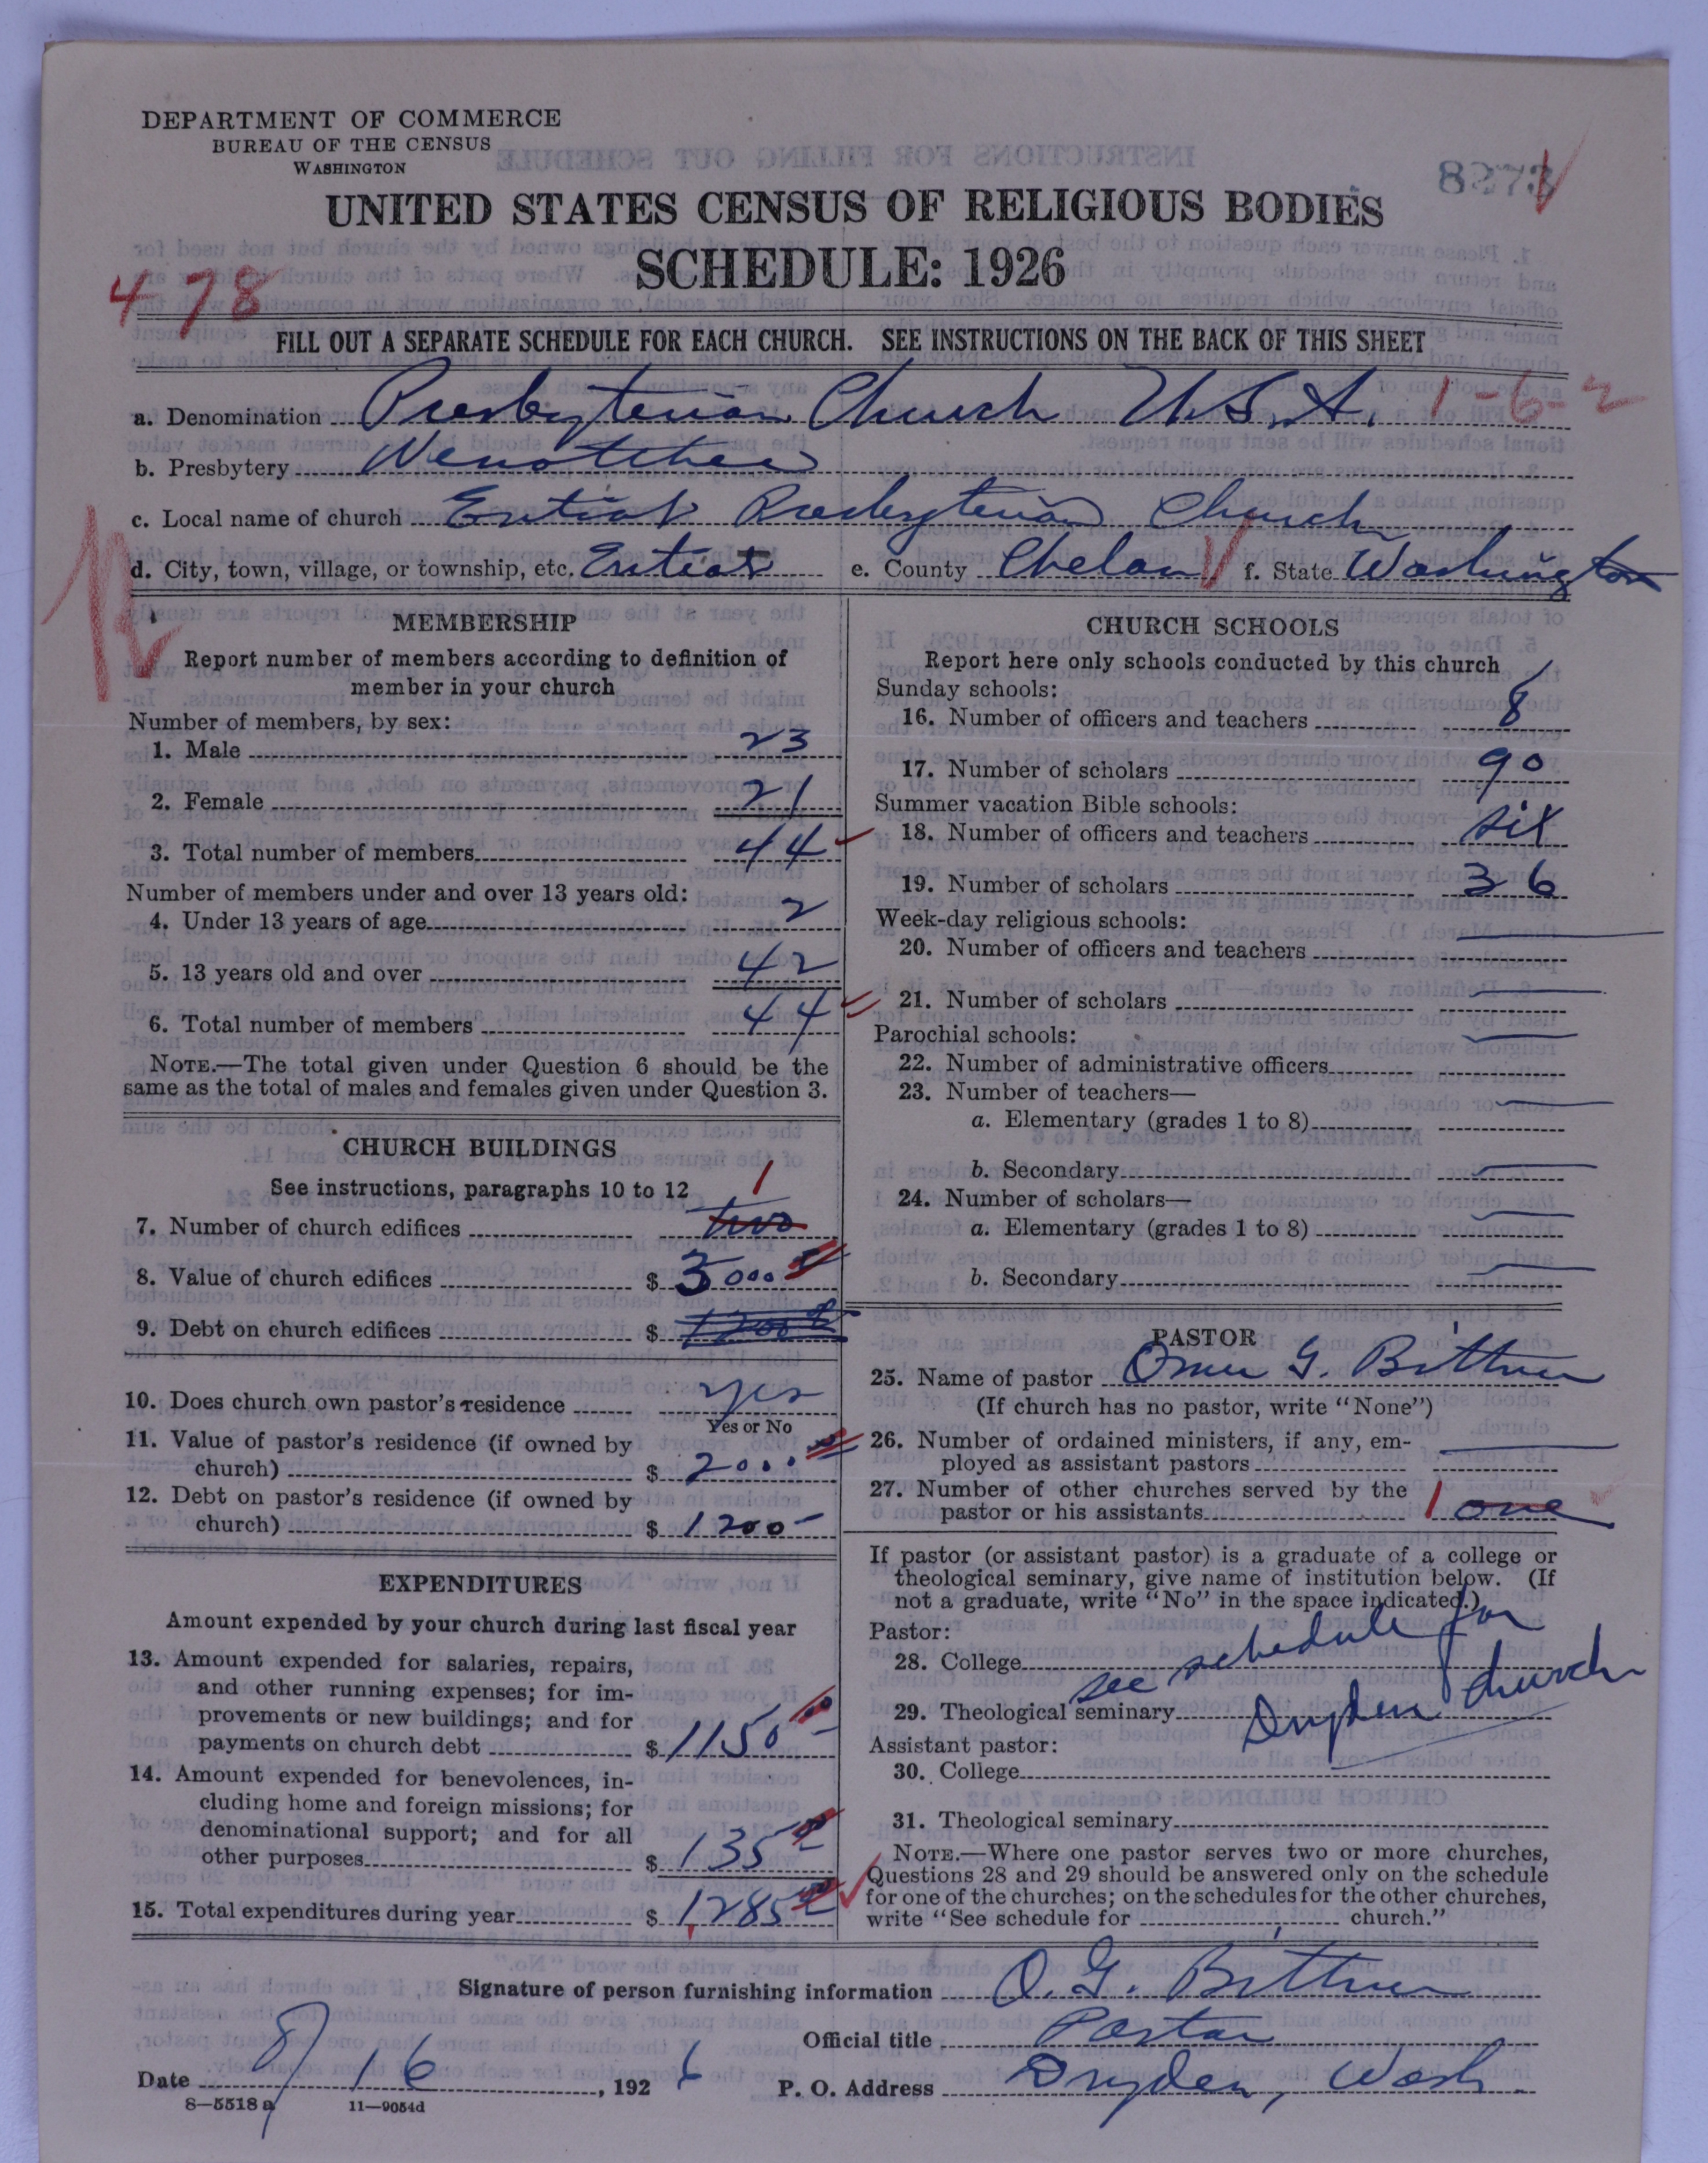 DEPARTMENT OF COMMERCE
BUREAU OF THE CENSUS
WASHINGTON
8273
UNITED STATES CENSUS OF RELIGIOUS BODIES
SCHEDULE: 1926
478
FILL OUT A SEPARATE SCHEDULE FOR EACH CHURCH. SEE INSTRUCTIONS ON THE BACK OF THIS SHEET
a. Denomination Presbyterian Church U.S.A. 1-6-2
b. Presbytery Wenatchee
c. Local name of church Entiat Presbyterian Church
d. City, town, village, or township, etc. Entiat e. County Chelan f. State Washington
MEMBERSHIP
Report number of members according to definition of
member in your church
Number of members, by sex:
1. Male 23
2. Female 21
3. Total number of members 44
Number of members under and over 13 years old:
4. Under 13 years of age 2
5. 13 years old and over 42
6. Total number of members 44
NOTE.—The total given under Question 6 should be the
same as the total of males and females given under Question 3.
CHURCH BUILDINGS
See instructions, paragraphs 10 to 12
1
7. Number of church edifices two
8. Value of church edifices $ 3000
9. Debt on church edifices $ 1200
10. Does church own pastor's residence yes
Yes or No
11. Value of pastor's residence (if owned by
church) $ 2000
12. Debt on pastor's residence (if owned by
church) $ 1200-
EXPENDITURES
Amount expended by your church during last fiscal year
13. Amount expended for salaries, repairs,
and other running expenses; for im-
provements or new buildings; and for
payments on church debt $ 1150
14. Amount expended for benevolences, in-
cluding home and foreign missions; for
denominational support; and for all
other purposes $ 135
15. Total expenditures during year $ 1285
CHURCH SCHOOLS
Report here only schools conducted by this church
Sunday schools:
16. Number of officers and teachers 8
17. Number of scholars 90
Summer vacation Bible schools:
18. Number of officers and teachers six
19. Number of scholars 36
Week-day religious schools:
20. Number of officers and teachers —
21. Number of scholars —
Parochial schools:
22. Number of administrative officers —
23. Number of teachers—
a. Elementary (grades 1 to 8) —
b. Secondary —
24. Number of scholars—
a. Elementary (grades 1 to 8) —
b. Secondary —
PASTOR
25. Name of pastor Omer G. Bittner
(If church has no pastor, write "None")
26. Number of ordained ministers, if any, em-
ployed as assistant pastors —
27. Number of other churches served by the
pastor or his assistants 1 one
If pastor (or assistant pastor) is a graduate of a college or
theological seminary, give name of institution below. (If
not a graduate, write "No" in the space indicated.)
Pastor:
28. College see schedule for
29. Theological seminary Dryden church
Assistant pastor:
30. College
31. Theological seminary
NOTE.—Where one pastor serves two or more churches,
Questions 28 and 29 should be answered only on the schedule
for one of the churches; on the schedules for the other churches,
write "See schedule for church."
Signature of person furnishing information O. G. Bittner
Official title Pastor
Date 8/16, 1926 P. O. Address Dryden, Wash.
8-5518 a 11-9054d